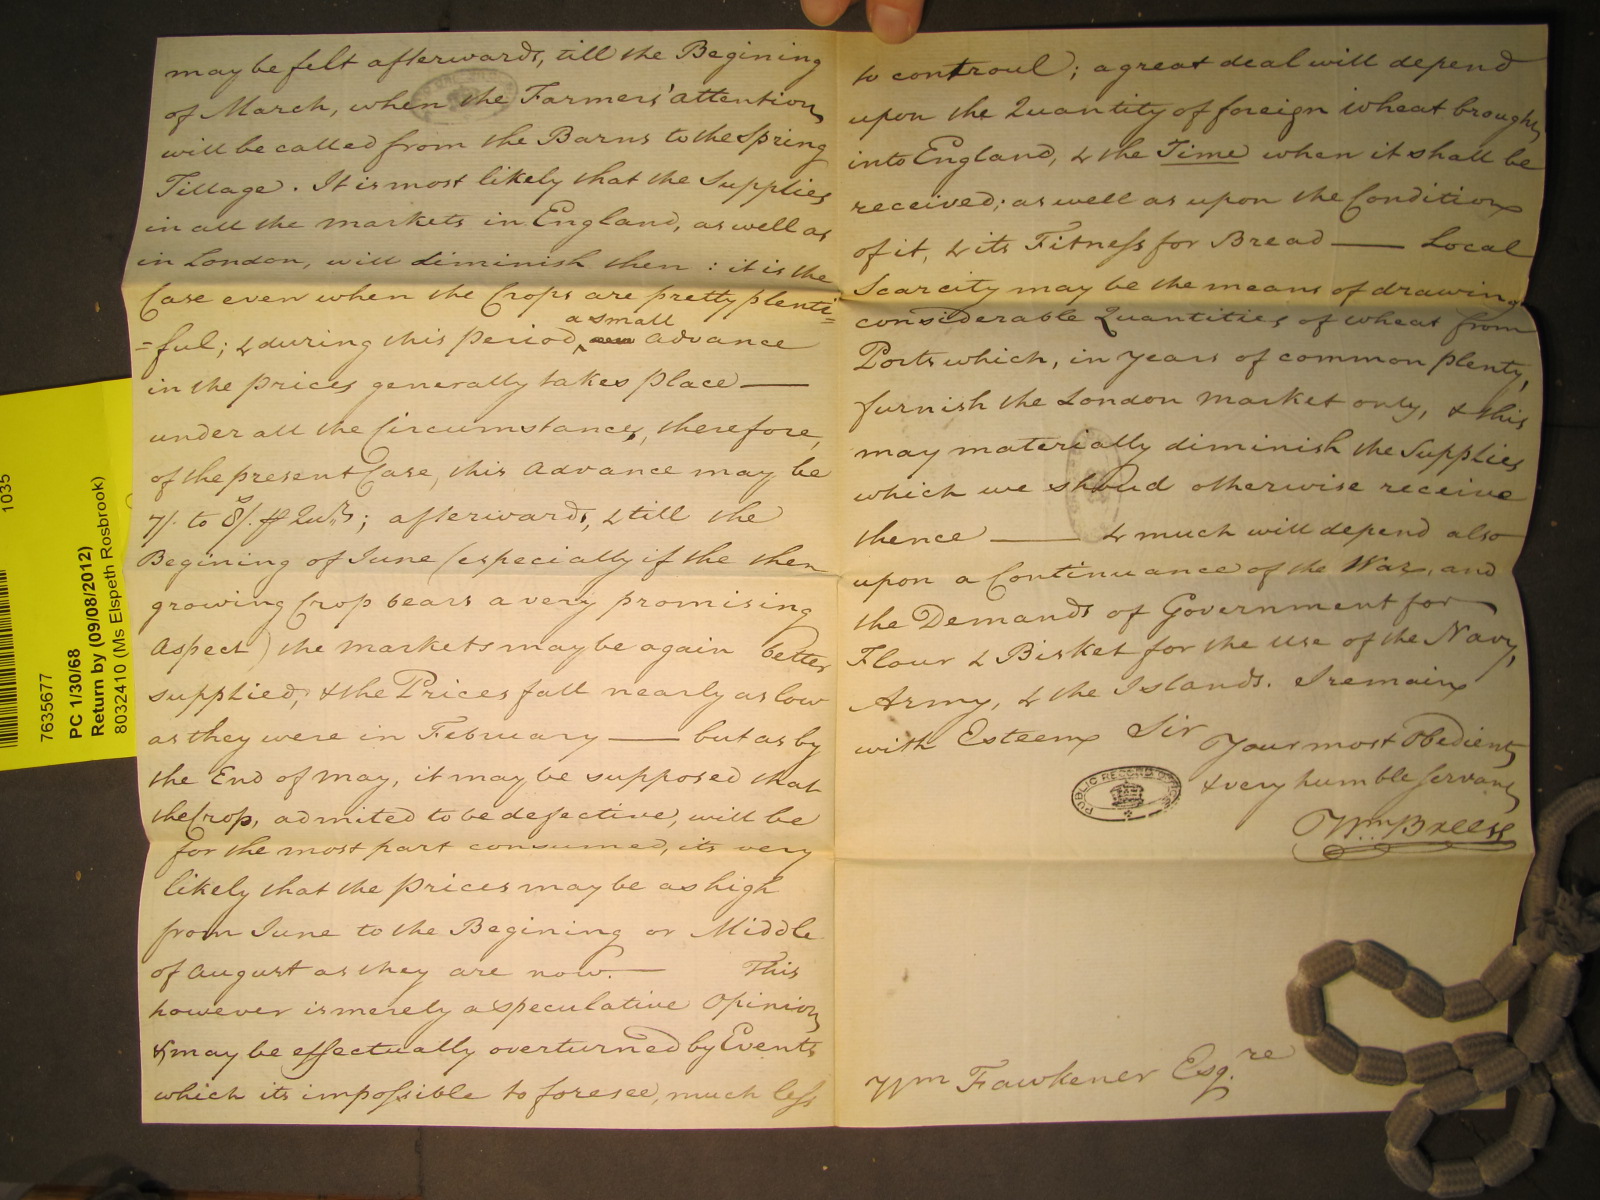 may be felt afterwards, till the Begining
of March, when the Farmers' attention
will be called from the Barns to the Spring
Tillage. It is most likely that the Supplies
in all the markets in England, as well as
in London, will diminish then : it is the
Case even when the Crops are pretty plenti=
=ful; & during this period, a small advance
in the prices generally takes place —
under all the Circumstances, therefore,
of the present Case, this advance may be
7/. to 8/. ⅌ Qur.; afterwards, & till the
Begining of June (especially if the then
growing Crop bears a very promising
Aspect) the markets may be again better
supplied, & the Prices fall nearly as low
as they were in February — but as by
the End of May, it may be supposed that
the Crop, admited to be defective, will be
for the most part consumed, its very
likely that the prices may be as high
from June to the Begining or Middle
of August as they are now. — This
however is merely a speculative Opinion,
& may be effectually overturned by Events
which its impossible to foresee, much less
to controul; a great deal will depend
upon the Quantity of foreign wheat brought
into England, & the Time when it shall be
received; as well as upon the Condition
of it, & its Fitness for Bread — Local
Scarcity may be the means of drawing
considerable Quantities of wheat from
Ports which, in years of common plenty,
furnish the London market only, & this
may materially diminish the Supplies
which we should otherwise receive
thence — & much will depend also
upon a Continuance of the War, and
the Demands of Government for
Flour & Bisket for the use of the Navy,
Army, & the Islands. I remain
with Esteem Sir
Your most Obedient
& very humble Servant
Wm Breese
PUBLIC RECORD OFFICE
Wm Fawkener Esq.re
1035
7635677
PC 1/30/68
Return by (09/08/2012)
8032410 (Ms Elspeth Rosbrook)